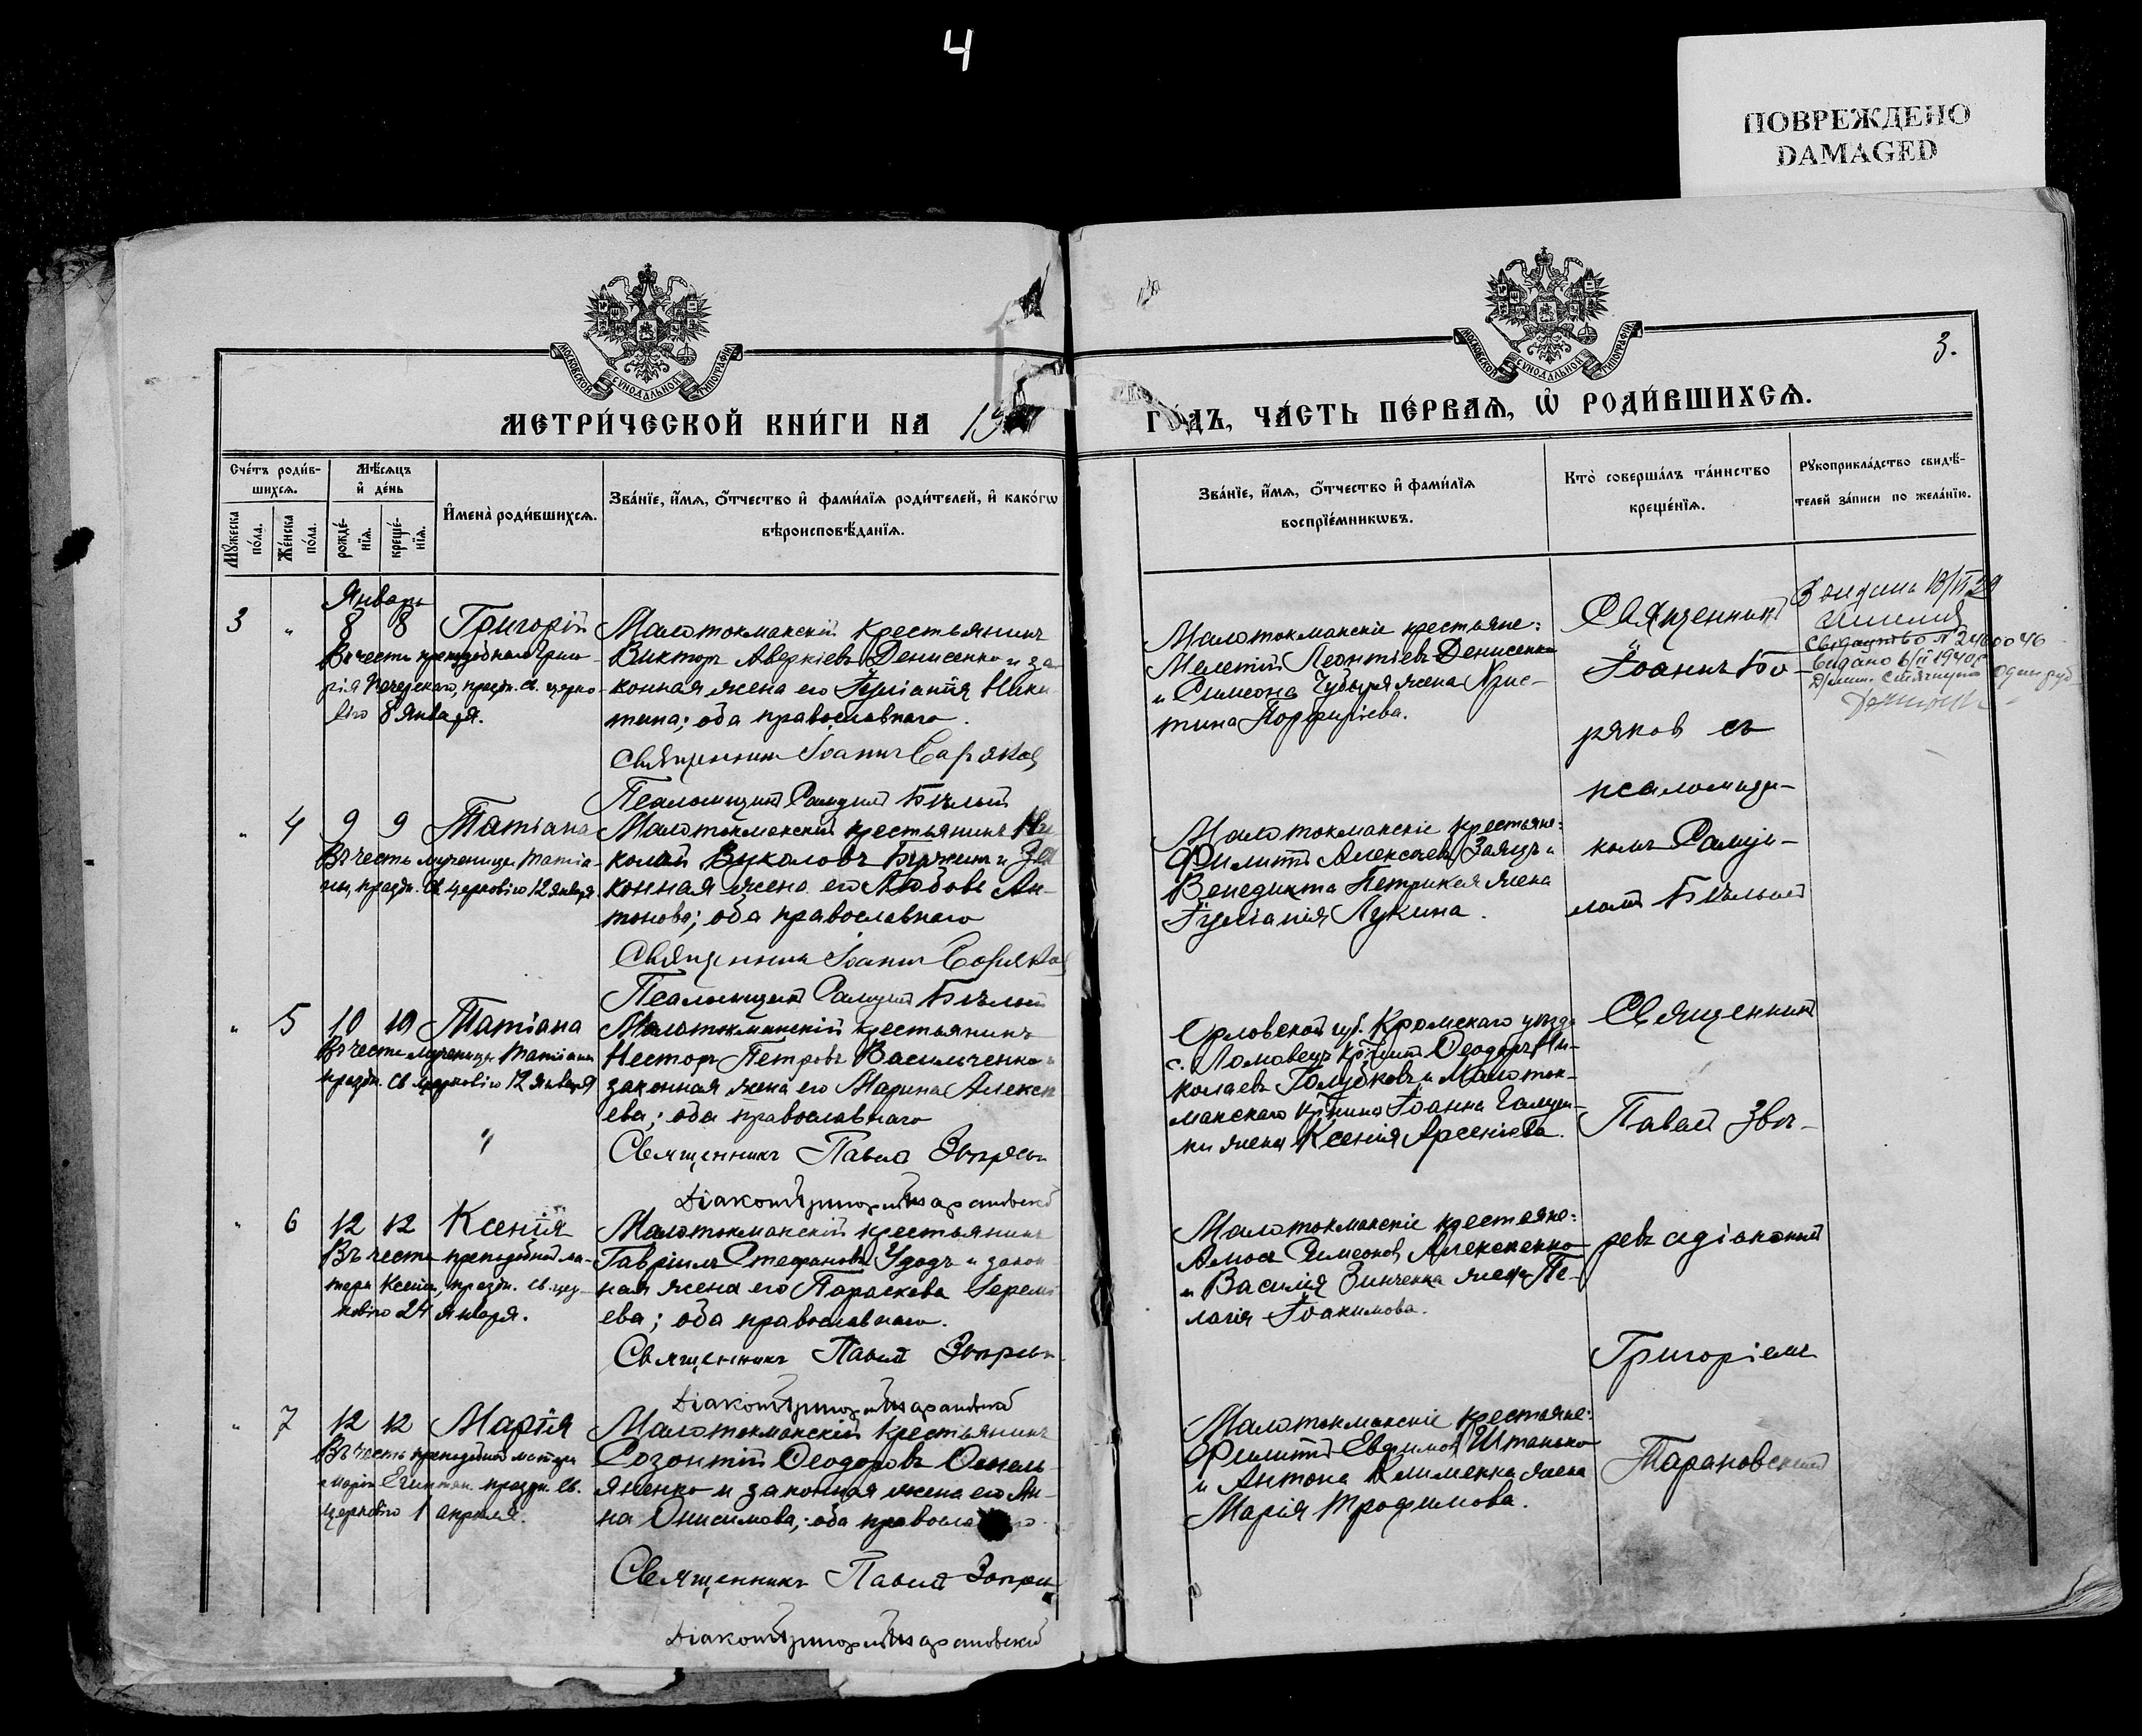 4
ПОВРЕЖДЕНО
DAMAGED
МОСКОВСКОЙ СУНОДАЛЬНОЙ ТИПОГРАФІИ
МОСКОВСКОЙ СУНОДАЛЬНОЙ ТИПОГРАФІИ
3.
МЕТРИ́ЧЕСКОЙ КНИ́ГИ НА 19
ГО́ДЪ, ЧА́СТЬ ПЕ́РВАѦ, Ѡ҆ РОДИ́ВШИХСѦ.
Сче́тъ роди́в-
шихсѧ.
Мꙋ́жеска по́ла.
Же́нска по́ла.
Мѣ́сѧцъ
и҆ де́нь
рожде́-
нїѧ.
креще́-
нїѧ.
И҆мена̀ роди́вшихсѧ.
Зва́нїе, и҆́мѧ, ѻ҆́тчество и҆ фами́лїѧ роди́телей, и҆ како́гѡ
вѣроисповѣ́данїѧ.
Зва́нїе, и҆́мѧ, ѻ҆́тчество и҆ фами́лїѧ
воспрїе́мникѡвъ.
Кто̀ соверша́лъ та́инство
креще́нїѧ.
Рꙋкоприкла́дство свидѣ́-
телей за́писи по жела́нїю.
Январь
3 " 8 8 Григорій
Въ честь преподобнаго Григо-
рія Печерскаго, праздн. св. церко-
вію 8 января.
Малотокмакскій крестьянинъ
Викторъ Аверкіевъ Денисенко и за-
конная жена его Іуліанія Ники-
тина; оба православнаго.
Священникъ Іоаннъ Боряковъ
Псаломщикъ Самуилъ Бѣлый
Малотокмакскіе крестьяне:
Мелетій Леонтіевъ Денисенко
и Симеона Чубыря жена Хрис-
тина Порфиріева.
Священникъ
Іоаннъ Бо-
ряков съ
псаломщи-
комъ Самуи-
ломъ Бѣлымъ
18/VI 29
Свидетство № 2460046
Выдано 6/II 1940г
один руб
" 4 9 9 Татіана
Въ честь мученицы Татіа-
ны, праздн. св. церковію 12 января.
Малотокмакскій крестьянинъ Ни-
колай Вуколовъ Бѣржинъ и за-
конная жена его Любовь Ан-
тонова; оба православнаго
Священникъ Іоаннъ Боряковъ
Псаломщикъ Самуилъ Бѣлый
Малотокмакскіе крестьяне:
Филиппъ Алексѣевъ Заяцъ и
Венедикта Петрикея жена
Іуліанія Лукина.
" 5 10 10 Татіана
Въ честь мученицы Татіаны
праздн. св. церковію 12 января
Малотокмакскій крестьянинъ
Несторъ Петровъ Васильченко и
законная жена его Марина Алексѣ-
ева; оба православнаго
Священникъ Павелъ Звѣревъ
Діаконъ Григорій Тарановскій
Орловской губ. Кромскаго уѣзда
с. Ломовецъ кр-нинъ Ѳеодоръ Ни-
колаевъ Голубковъ и Малоток-
макскаго кр-нина Іоанна Галуш-
ки жена Ксенія Арсеніева.
Священникъ
Павелъ Звѣ-
ревъ съ діакономъ
Григоріемъ
Тарановскимъ
" 6 12 12 Ксенія
Въ честь преподобной ма-
тери Ксеніи, праздн. св. цер-
ковію 24 января.
Малотокмакскій крестьянинъ
Гавріилъ Стефановъ Удодъ и закон-
ная жена его Параскева Іеремі-
ева; оба православнаго.
Священникъ Павелъ Звѣревъ
Діаконъ Григорій Тарановскій
Малотокмакскіе крестьяне:
Амосъ Симеоновъ Алексѣенко
и Василія Зинченка жена Пе-
лагія Іоакимова.
" 7 12 12 Марія
Въ честь преподобной матери
Маріи Египтян. праздн. св.
церковію 1 апрѣля.
Малотокмакскій крестьянинъ
Созонтій Ѳеодоровъ Омель-
яненко и законная жена его Ан-
на Онисимова; оба православнаго.
Священникъ Павелъ Звѣревъ
Діаконъ Григорій Тарановскій
Малотокмакскіе крестьяне:
Филиппъ Евфимовъ Штанько
и Антона Клименка жена
Марія Трофимова.